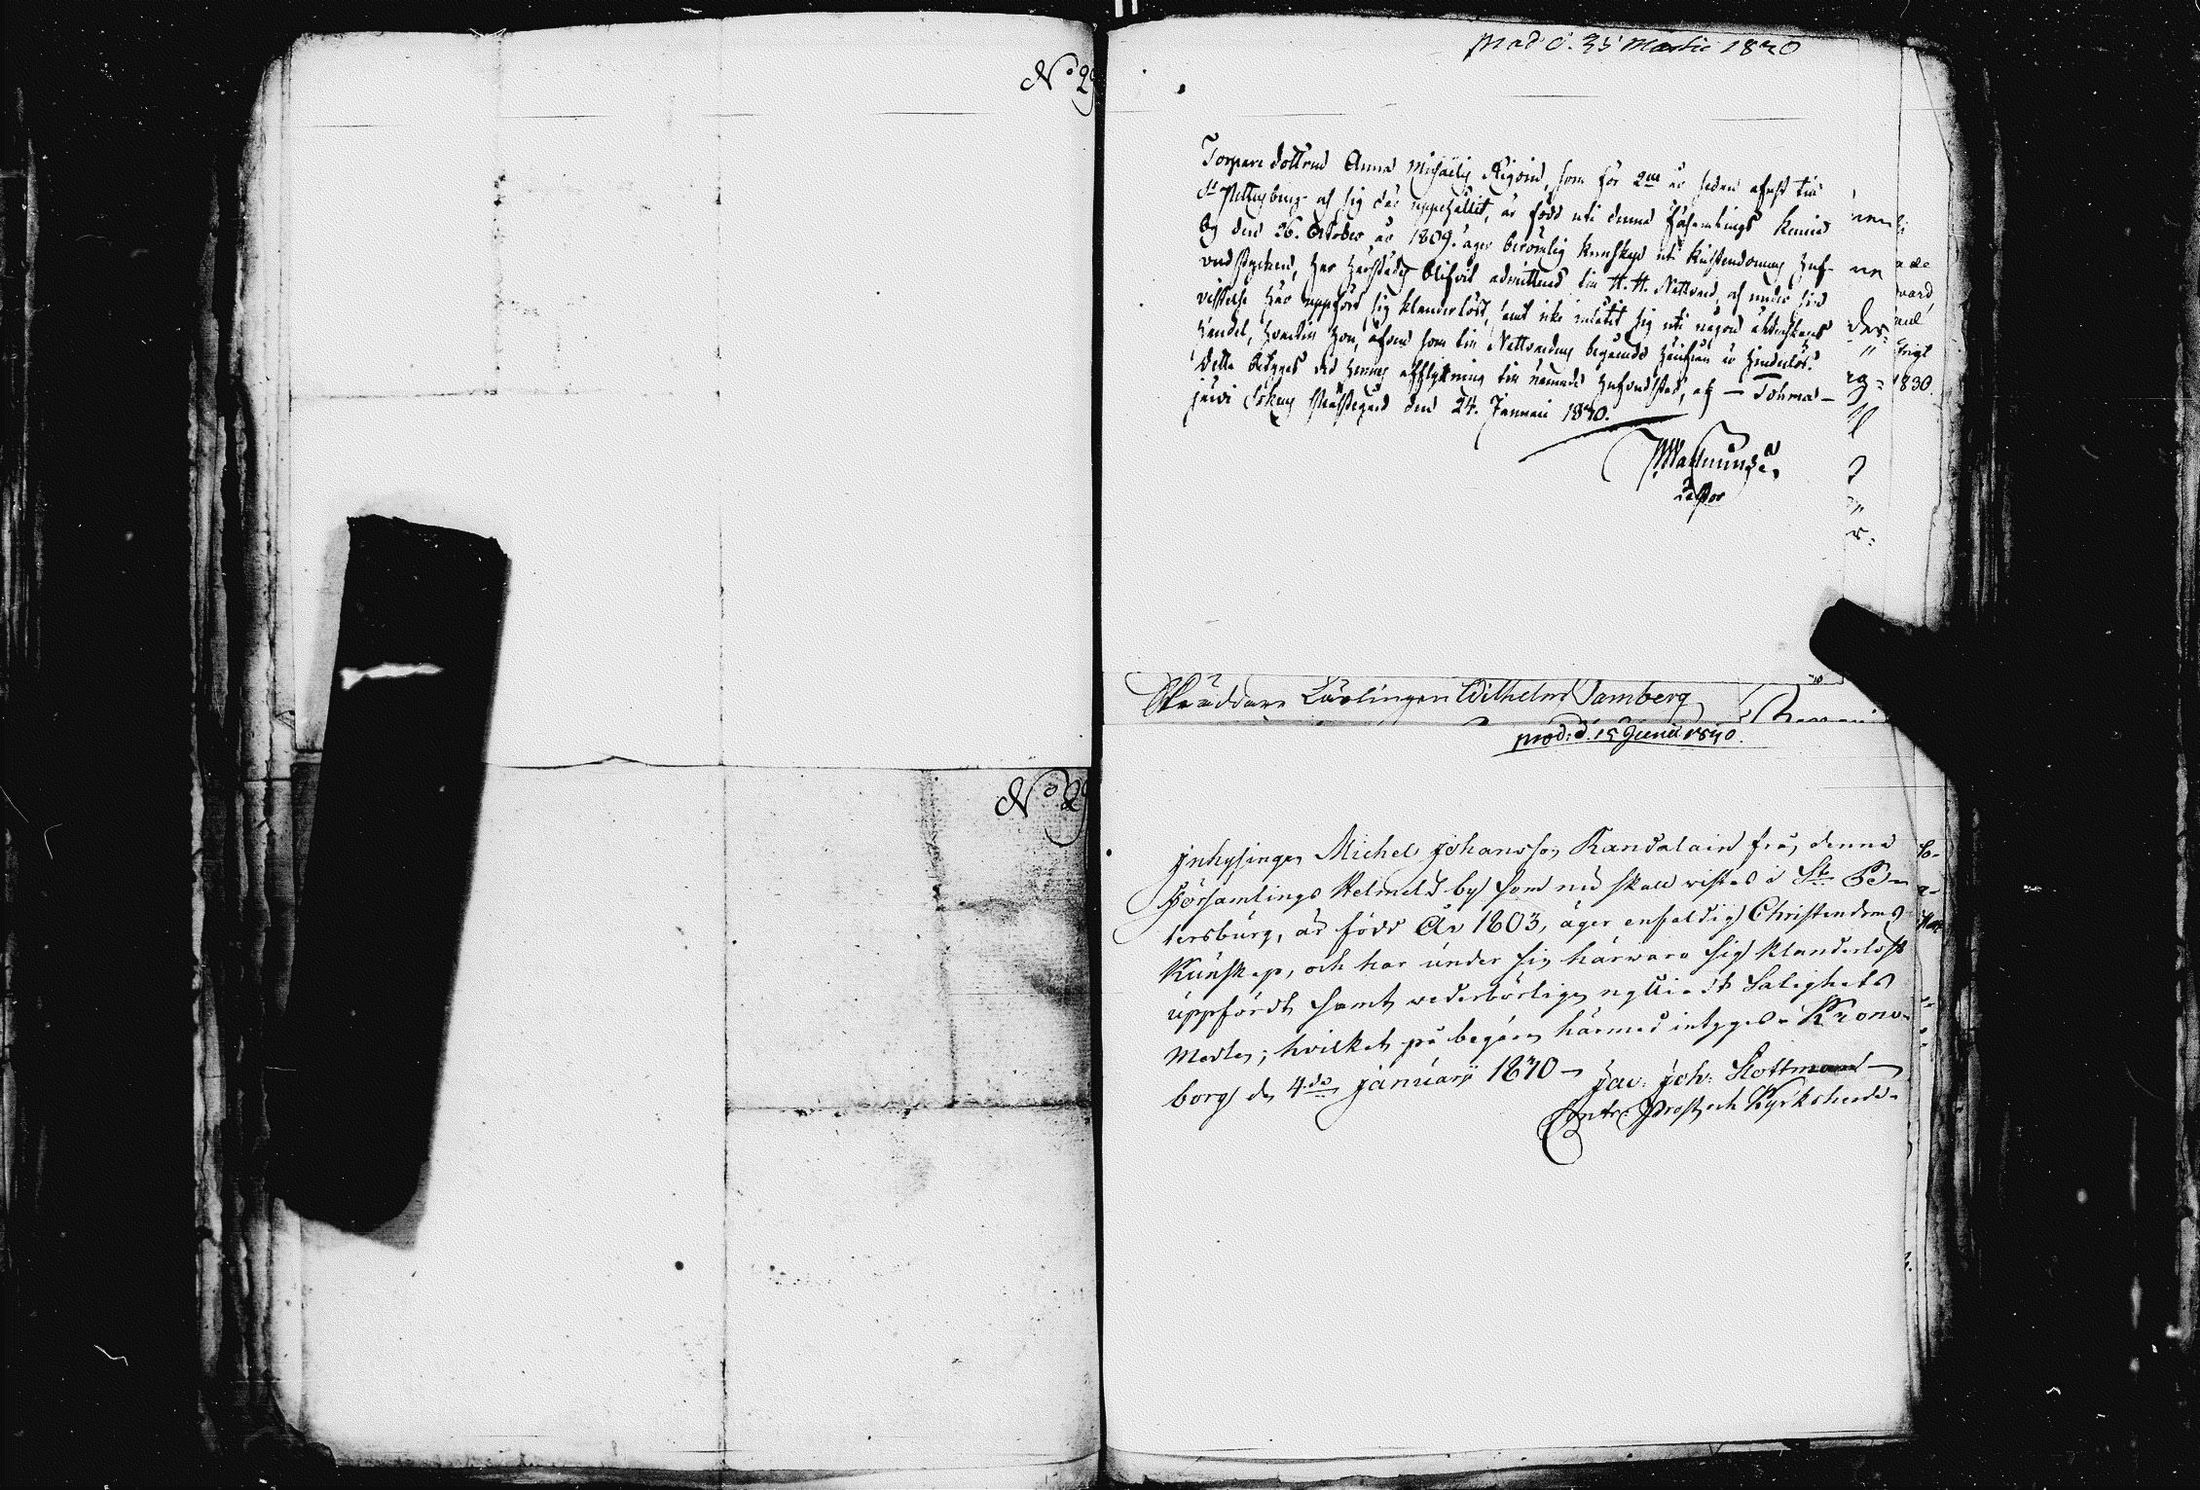 No 29
Prod d. 31 Martii 1830
Torpare dottren Anna Michaëlis Rigoin, som för 2ne år sedan afrest till
St Pettersburg och sig där uppehållit, är född uti denna Församlings Kemie
By den 26. October år 1809. äger berömlig kunskap uti Christendomens huf-
vudstycken, har härstädes blifvit admitterad till H. H. Nattvard, och under sin
vistelse här uppfört sig klanderlöst, samt icke inlåtit sig uti någon äktenskaps
handel, hvartill hon, äfven som till Nattvardens begående härifrån är hinderlös.
Detta betygas vid hennes afflyttning till nämnde hufvudstad, af — Tohma-
järvi Sokens Prästegård den 24. Januari 1830.
Pastor
1830.
Skräddare Lärlingen Wilhelm Samberg
prod: d. 15 Junii 1830.
No 29
Inhysingen Michel Johansson Kandalain från denna
Församlings Helmelä by som nu skall vistas i St Pe-
tersburg, är född År 1803, äger enfaldig Christendoms
Kunskap, och har under sin härvaro sig klanderlöst
uppfördt samt vederbörligen nyttjadt Salighets
Medlen; hvilket på begäran härmed intygas. Krono-
borg den 4de Januarii 1830 — Jac: Joh: Stottman
Contr: Prost och Kyrkoherde.